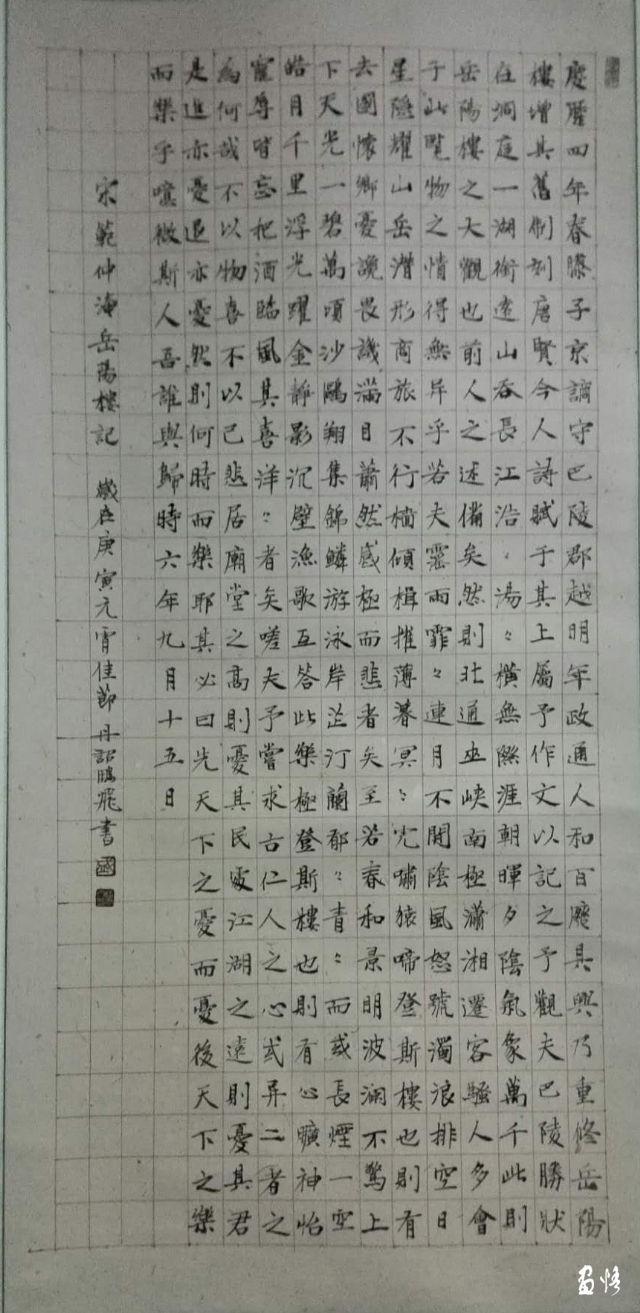 慶曆四年春滕子京謫守巴陵郡越明年政通人和百廢具興乃重修岳陽
樓增其舊制刻唐賢今人詩賦于其上屬予作文以記之予觀夫巴陵勝狀
在洞庭一湖銜遠山吞長江浩〻湯〻橫無際涯朝暉夕陰氣象萬千此則
岳陽樓之大觀也前人之述備矣然則北通巫峽南極瀟湘遷客騷人多會
于此覽物之情得無异乎若夫霪雨霏〻連月不開陰風怒號濁浪排空日
星隱耀山岳潛形商旅不行檣傾楫摧薄暮冥〻虎嘯猿啼登斯樓也則有
去國懷鄉憂讒畏譏滿目蕭然感極而悲者矣至若春和景明波瀾不驚上
下天光一碧萬頃沙鷗翔集錦鱗游泳岸芷汀蘭郁〻青〻而或長煙一空
皓月千里浮光躍金靜影沉壁漁歌互答此樂極登斯樓也則有心曠神怡
寵辱皆忘把酒臨風其喜洋〻者矣嗟夫予嘗求古仁人之心或异二者之
為何哉不以物喜不以己悲居廟堂之高則憂其民處江湖之遠則憂其君
是進亦憂退亦憂然則何時而樂耶其必曰先天下之憂而憂後天下之樂
而樂乎噫微斯人吾誰與歸時六年九月十五日
宋範仲淹岳陽樓記 歲在庚寅元宵佳節丹詔鵬飛書